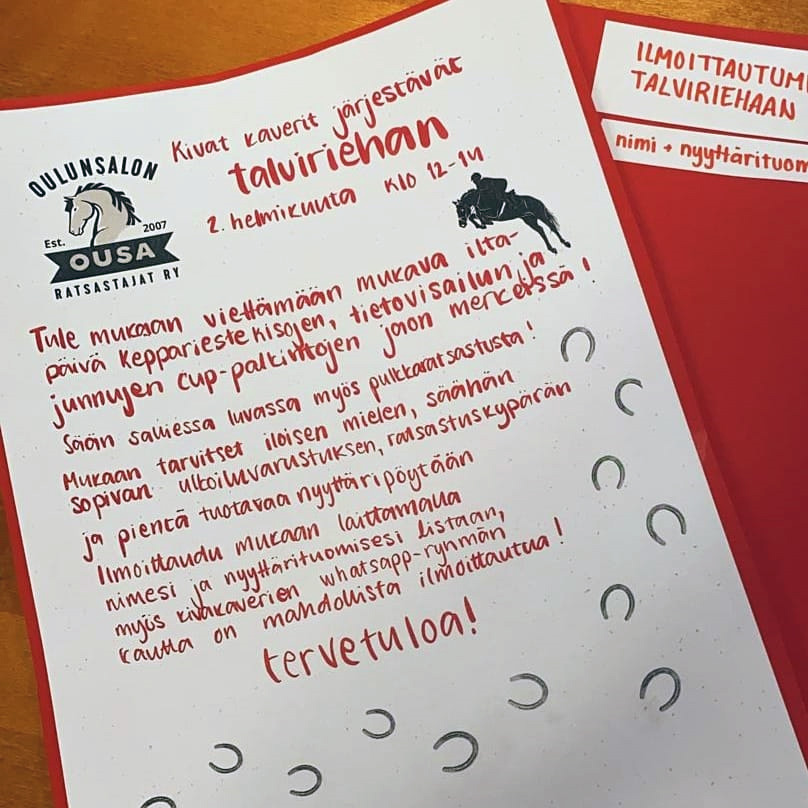 Kivat kaverit järjestävät
talviriehan
2. helmikuuta klo 12-14
OULUNSALON
Est. 2007
OUSA
RATSASTAJAT RY
Tule mukaan viettämään mukava ilta-
päivä keppariestekisojen, tietovisailun ja
junnujen cup-palkintojen jaon merkeissä!
Sään salliessa luvassa myös pulkkaratsastusta!
Mukaan tarvitset iloisen mielen, säähän
sopivan ulkoiluvarustuksen, ratsastuskypärän
ja pientä tuotavaa nyyttäripöytään
Ilmoittaudu mukaan laittamalla
nimesi ja nyyttärituomisesi listaan,
myös kivakaverien whatsapp-ryhmän
kautta on mahdollista ilmoittautua!
tervetuloa!
ILMOITTAUTUMI
TALVIRIEHAAN
nimi + nyyttärituom